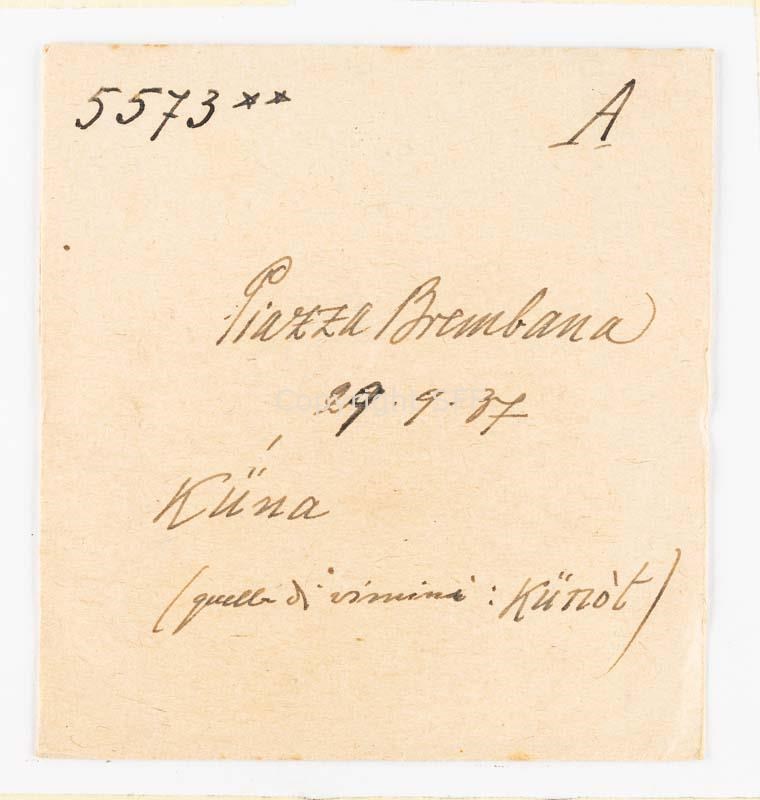 5573** A
Piazza Brembana
29·9·37
Kǘna
(quella di vimini: Künòt)